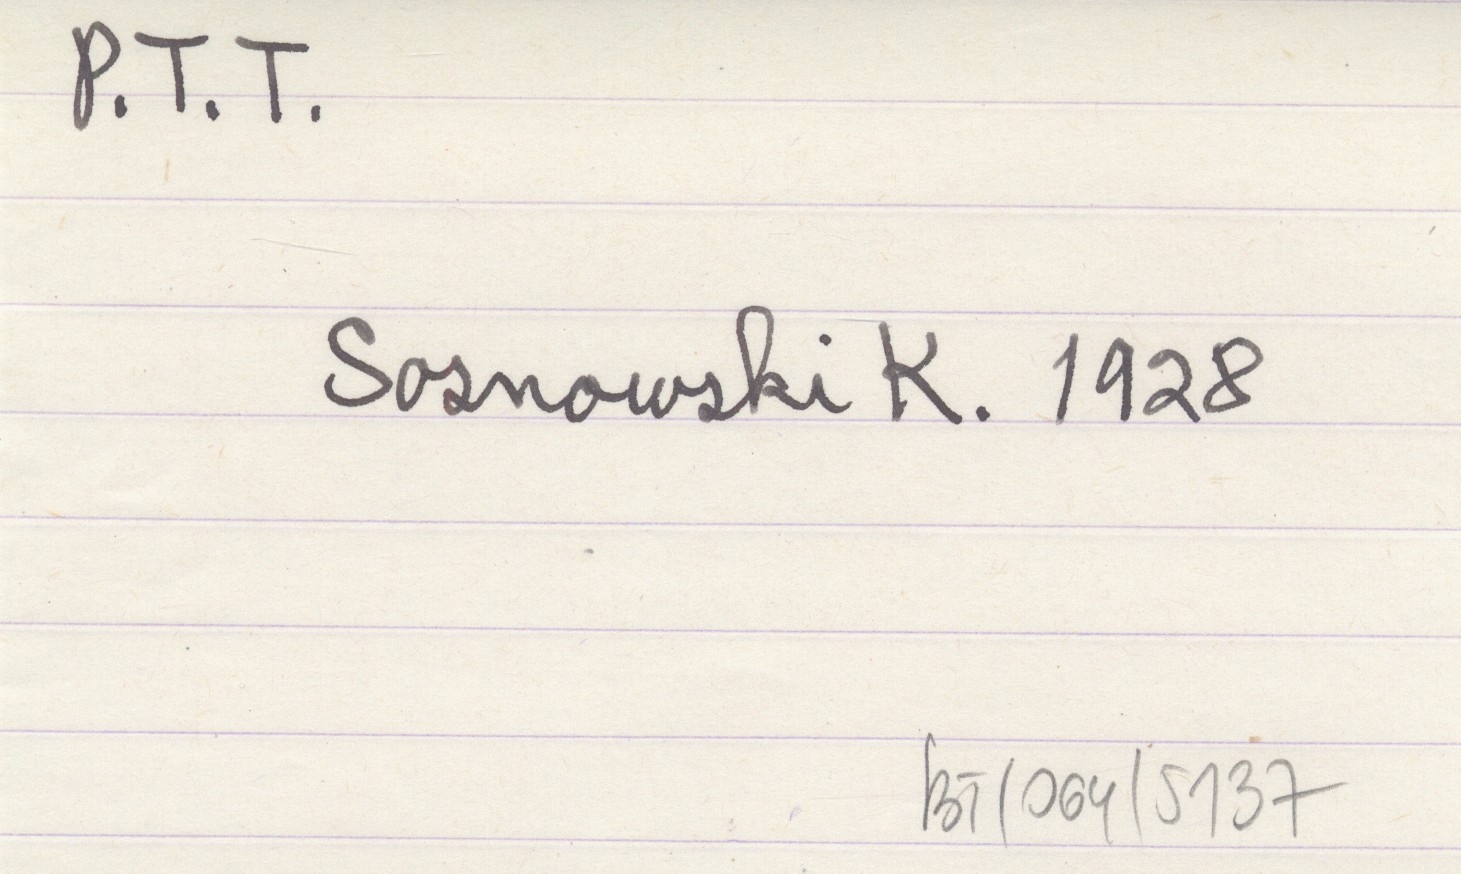 P.T.T.
Sosnowski K. 1928
BT/064/5137